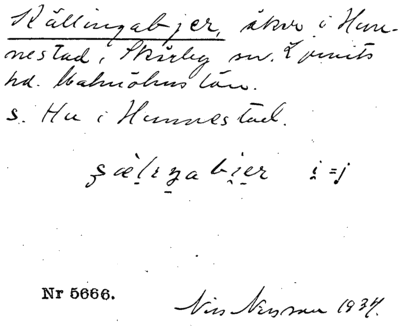 Källingabjer, åker i Hun-
nestad, Skårby sn. Ljunits
hd. Malmöhus län.
s. Hu i Hunnestad.
i̯ = j
Nr 5666.
Nils Nilsson 1934.